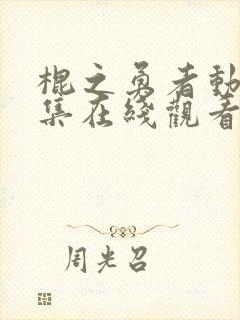 棍之勇者動
集在綫觀看
周光召